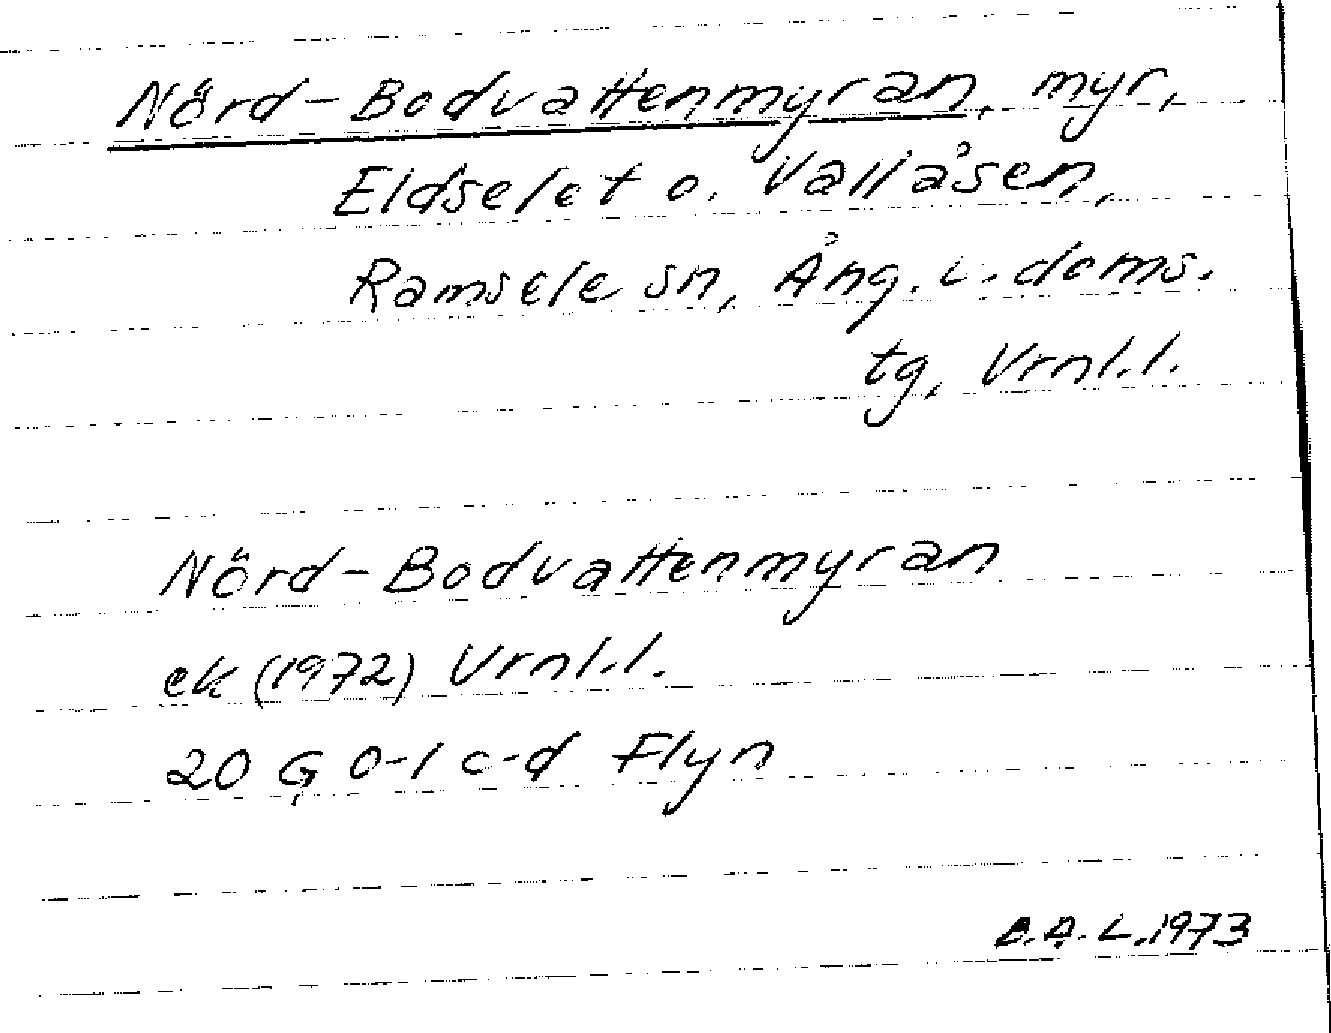 Nörd-Bodvattenmyran, myr,
Eldselet o. Vallåsen,
Ramsele sn, Ång. v. doms.
tg, Vrnl.l.
Nörd-Bodvattenmyran
ek (1972) Vrnl.l.
20 G 0-1 c-d Flyn
B.A.L.1973